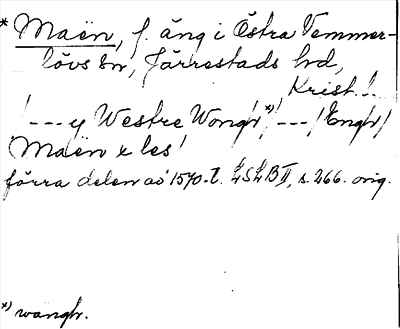 * Maën, f. äng i Östra Vemmer-
lövs sn, Järrestads hd,
Krist. l.
! --- y Westre Wongh *)! --- / Engh /
Maën x les!
förra delen av 1570-t. LSLB II, s. 266. orig.
*) wangh.